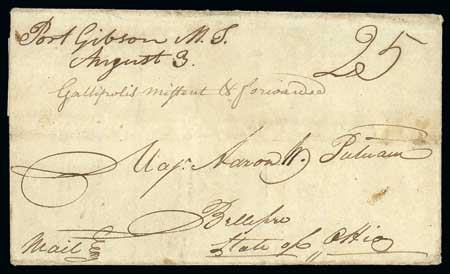 Port Gibson M. T.
August 3.
25
Gallipolis missent & forwarded
Maj. Aaron W. Putnam
Bellepre
State of Ohio
Mail